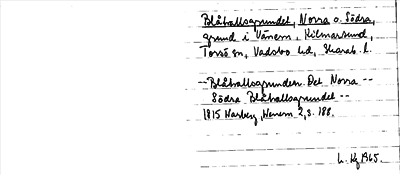 Blåhallsgrundet, Norra o. Södra,
grund i Vänern, Kilmarsund,
Torsö sn, Vadsbo hd, Skarab. l.
--Blåhallsgrunden. Det Norra --
Södra Blåhallsgrundet --
1815 Warberg, Wenern 2, s. 188.
1965.